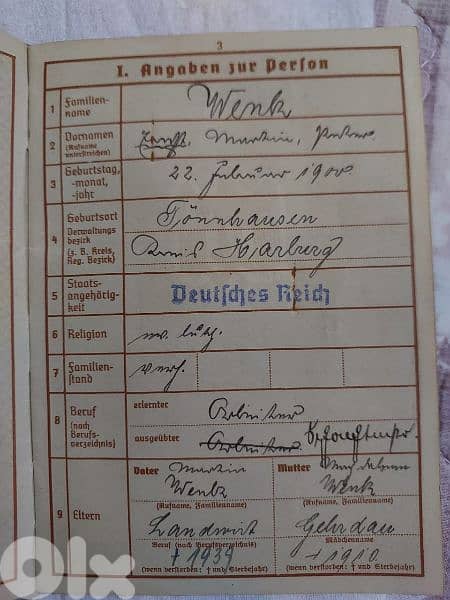 3
I. Angaben zur Person
1 Familien-
name
Wenk
2 Vornamen
(Rufname
unterstreichen)
Ernst, Martin, Peter
3 Geburtstag,
-monat,
-jahr
22. Februar 1900
4 Geburtsort
Verwaltungs-
bezirk
(z. B. Kreis,
Reg. Bezirk)
Tönnhausen
Kreis Harburg
5 Staats-
angehörig-
keit
Deutsches Reich
6 Religion
ev. luth.
7 Familien-
stand
verh.
8 Beruf
(nach
Berufs-
verzeichnis)
erlernter
Arbeiter
ausgeübter
Arbeiter
9 Eltern
Vater Martin
Wenk
(Rufname, Familienname)
Landwirt
Beruf (nach Berufsverzeichnis)
† 1939
(wenn verstorben: † und Sterbejahr)
Mutter
Wenk
(Rufname, Familienname)
Gehrdau
Mädchenname
† 1910
(wenn verstorben: † und Sterbejahr)
olx